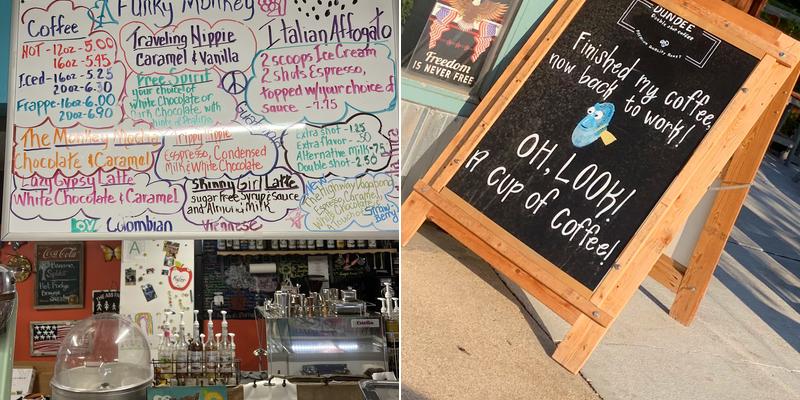 A Funky Monkey
Coffee
HOT - 12oz - 5.00
16oz - 5.95
Iced - 16oz - 5.25
20oz - 6.30
Frappe - 16oz - 6.00
20oz - 6.90
Traveling Hippie
Caramel & Vanilla
Free Spirit
your choice of
White Chocolate or
Dark Chocolate, with
hints of Praline
Italian Affogato
2 scoops Ice Cream
2 shots Espresso,
topped w/your choice of
sauce. - 7.75
The Monkey Mocha
Chocolate & Caramel
Trippy Hippie
Espresso, Condensed
Milk & White Chocolate
Extra shot - 1.25
Extra flavor - .50
Alternative Milk - .75
Double shot - 2.50
Lazy Gypsy Latte
White Chocolate & Caramel
Skinny Girl Latte
sugar free syrup & sauce
and Almond Milk
New
The Highway Vagabond
Espresso, Caramel
White Chocolate
Straw
Berry
Colombian
Viennese
Coca-Cola
Banana
Splits
Hot Fudge
Brownie
Freedom
IS NEVER FREE
DUNDEE
Finished my coffee,
now back to work!
OH, LOOK!
A cup of coffee!